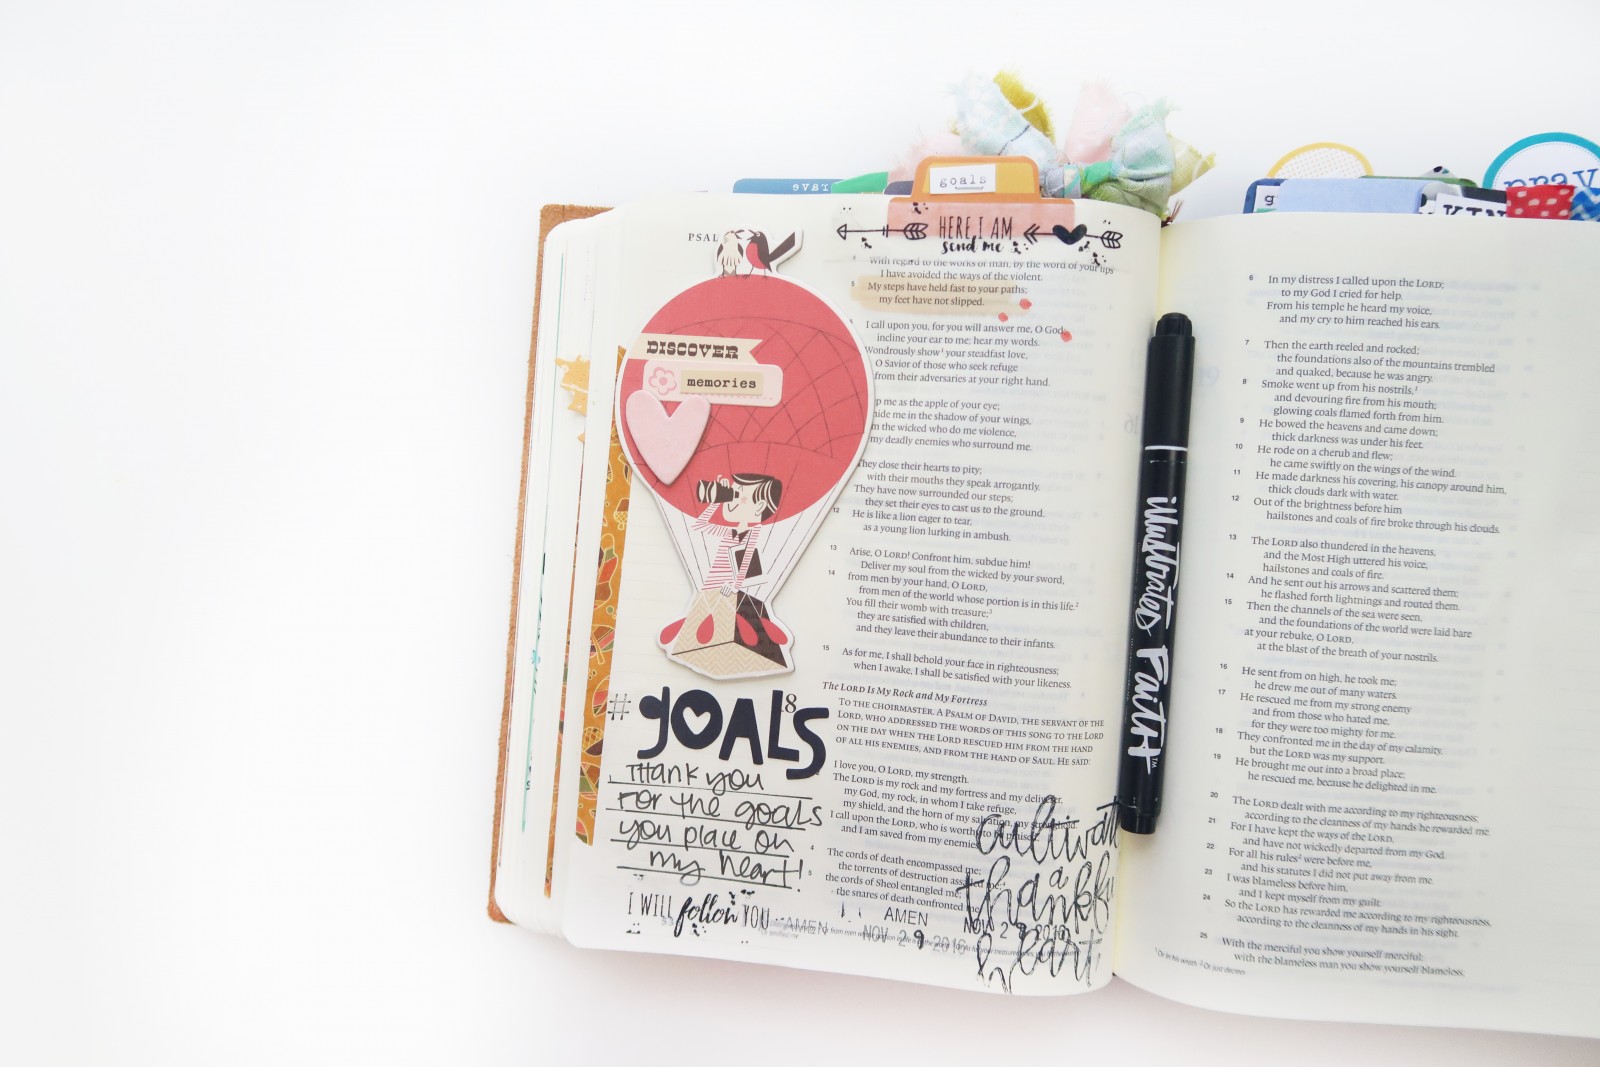 goals
HERE I AM
send me
PSAL
DISCOVER
memories
# GOALS
Thank you
FOR the goals
you place on
my heart!
I WILL follow YOU
AMEN
With regard to the works of man, by the word of your lips
I have avoided the ways of the violent.
5 My steps have held fast to your paths;
my feet have not slipped.
I call upon you, for you will answer me, O God;
incline your ear to me; hear my words.
Wondrously show your steadfast love,
O Savior of those who seek refuge
from their adversaries at your right hand.
p me as the apple of your eye;
hide me in the shadow of your wings,
m the wicked who do me violence,
my deadly enemies who surround me.
They close their hearts to pity;
with their mouths they speak arrogantly.
They have now surrounded our steps;
they set their eyes to cast us to the ground.
12 He is like a lion eager to tear,
as a young lion lurking in ambush.
13 Arise, O LORD! Confront him, subdue him!
Deliver my soul from the wicked by your sword,
14 from men by your hand, O LORD,
from men of the world whose portion is in this life.2
You fill their womb with treasure;3
they are satisfied with children,
and they leave their abundance to their infants.
15 As for me, I shall behold your face in righteousness;
when I awake, I shall be satisfied with your likeness.
The LORD Is My Rock and My Fortress
18 TO THE CHOIRMASTER. A PSALM OF DAVID, THE SERVANT OF THE
LORD, WHO ADDRESSED THE WORDS OF THIS SONG TO THE LORD
ON THE DAY WHEN THE LORD RESCUED HIM FROM THE HAND
OF ALL HIS ENEMIES, AND FROM THE HAND OF SAUL. HE SAID:
I love you, O LORD, my strength.
The LORD is my rock and my fortress and my deliverer,
my God, my rock, in whom I take refuge,
my shield, and the horn of my salvation, my stronghold.
I call upon the LORD, who is worthy to be praised,
and I am saved from my enemies.
4 The cords of death encompassed me;
the torrents of destruction assailed me;
5 the cords of Sheol entangled me;
the snares of death confronted me.
cultivat
a
thankfu
heart
AMEN
NOV 28 2016
NOV 28 2016
illustrated FAITH™
pray
KIN
6 In my distress I called upon the LORD;
to my God I cried for help.
From his temple he heard my voice,
and my cry to him reached his ears.
7 Then the earth reeled and rocked;
the foundations also of the mountains trembled
and quaked, because he was angry.
8 Smoke went up from his nostrils,1
and devouring fire from his mouth;
glowing coals flamed forth from him.
9 He bowed the heavens and came down;
thick darkness was under his feet.
10 He rode on a cherub and flew;
he came swiftly on the wings of the wind.
11 He made darkness his covering, his canopy around him,
thick clouds dark with water.
12 Out of the brightness before him
hailstones and coals of fire broke through his clouds.
13 The LORD also thundered in the heavens,
and the Most High uttered his voice,
hailstones and coals of fire.
14 And he sent out his arrows and scattered them;
he flashed forth lightnings and routed them.
15 Then the channels of the sea were seen,
and the foundations of the world were laid bare
at your rebuke, O LORD,
at the blast of the breath of your nostrils.
16 He sent from on high, he took me;
he drew me out of many waters.
17 He rescued me from my strong enemy
and from those who hated me,
for they were too mighty for me.
18 They confronted me in the day of my calamity,
but the LORD was my support.
19 He brought me out into a broad place;
he rescued me, because he delighted in me.
20 The LORD dealt with me according to my righteousness;
according to the cleanness of my hands he rewarded me.
21 For I have kept the ways of the LORD,
and have not wickedly departed from my God.
22 For all his rules2 were before me,
and his statutes I did not put away from me.
23 I was blameless before him,
and I kept myself from my guilt.
24 So the LORD has rewarded me according to my righteousness,
according to the cleanness of my hands in his sight.
25 With the merciful you show yourself merciful;
with the blameless man you show yourself blameless;
1 Or in his wrath 2 Or just decrees